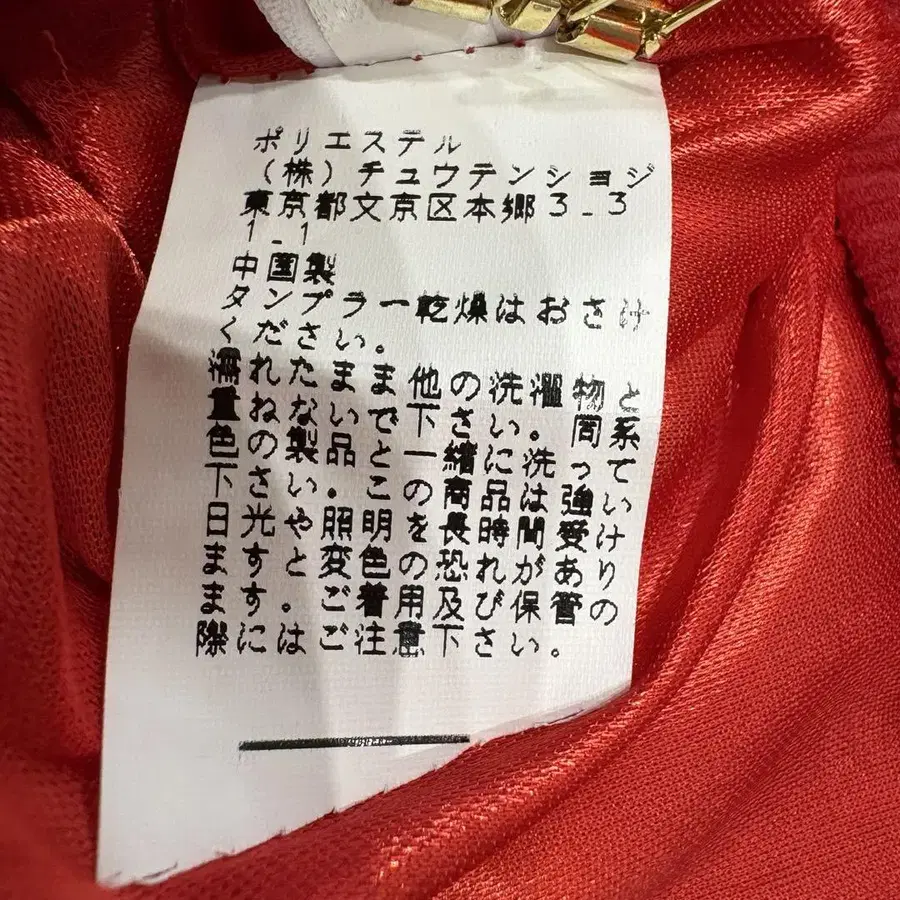 ポリエステル
(株)チュウテンショジ
東京都文京区本郷3_3
1_1
中国製
タンプラー乾燥はおさけ
ください。
濡れたまま他の洗濯物と
重ねないで下さい。同系
色の製品と一緒に洗って
下さい。この商品は強い
日光や照明を長時間愛け
ますと変色の恐れがあり
ます。ご着用及び保管の
際にはご注意下さい。